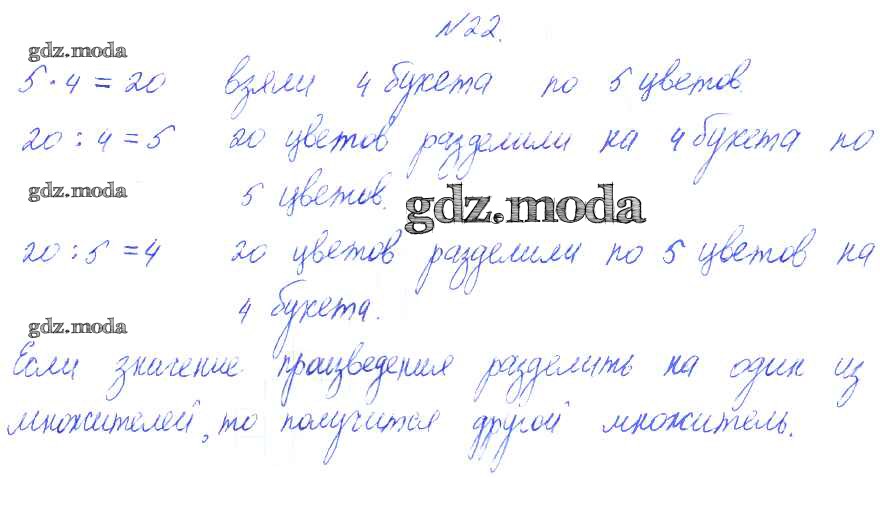 №22.
gdz.moda
5·4=20 взяли 4 букета по 5 цветов.
20:4=5 20 цветов разделили на 4 букета по
gdz.moda
5 цветов.
gdz.moda
20:5=4 20 цветов разделили по 5 цветов на
4 букета.
gdz.moda
Если значение произведения разделить на один из
множителей, то получится другой множитель.